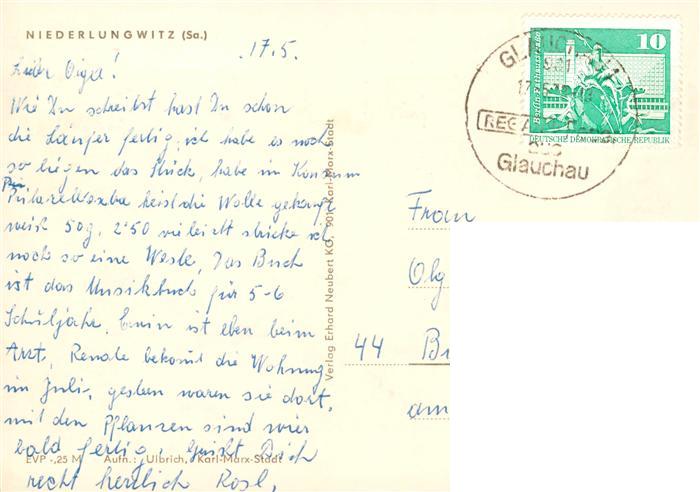 NIEDERLUNGWITZ (Sa.)
17.5.
Liebe Olga!
Wie Du schreibst hast Du schon
die Läufer fertig, ich habe es noch
so liegen das Stück, habe im Konsum
heist die Wolle gekauft
weiß 50g. 2'50 vieleicht stricke ich
noch so eine Weste, Das Buch
ist das Musikbuch für 5-6
Schuljahre, Erwin ist eben beim
Arzt, Renate bekomt die Wohnung
im Juli, gestern waren sie dort,
mit den Pflanzen sind wir
bald fertig, Grüßt Dich
recht herzlich Rosl,
EVP -,25 M Aufn.: Ulbrich, Karl-Marx-Stadt
Verlag Erhard Neubert KG, 901 Karl-Marx-Stadt
10
Berlin-Rathausstraße
DEUTSCHE DEMOKRATISCHE REPUBLIK
Glauchau
Frau
Olg
44 Bi
am